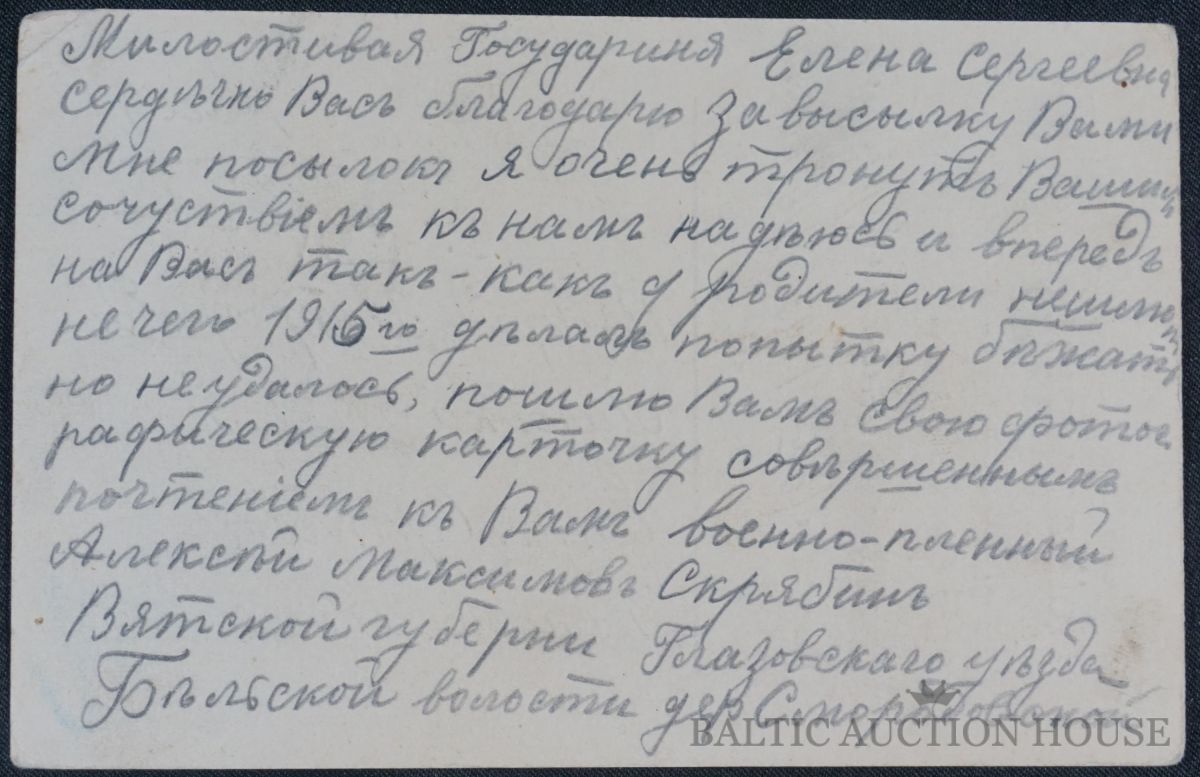 Милостивая Государиня Елена Сергеевна
сердѣчно Васъ благодарю за высылку Вами
мне посылокъ я очень тронутъ Вашимъ
сочуствіемъ къ намъ надѣюсь и впередъ
на Васъ такъ-какъ родители нешлютъ
нечего 1915го дѣлалъ попытку бѣжать
но неудалось, пошлю Вамъ свою фотог
рафическую карточку совѣршеннымъ
почтеніемъ къ Вамъ военно-пленный
Алексѣй Максимовъ Скрябинъ
Вятской губерни Глазовскаго уѣзда
Бѣльской волости дер
BALTIC AUCTION HOUSE